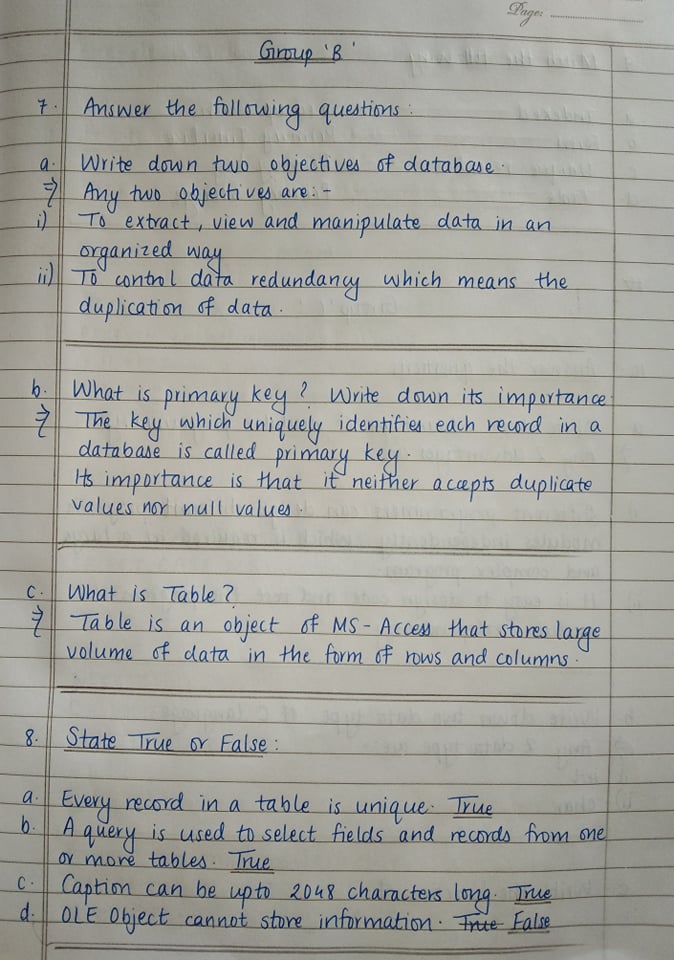 Page:
Group 'B'
7. Answer the following questions:
a. Write down two objectives of database.
⇒ Any two objectives are:-
i) To extract, view and manipulate data in an
organized way
ii) To control data redundancy which means the
duplication of data.
b. What is primary key? Write down its importance.
⇒ The key which uniquely identifies each record in a
database is called primary key.
Its importance is that it neither accepts duplicate
values nor null values.
c. What is Table?
⇒ Table is an object of MS-Access that stores large
volume of data in the form of rows and columns.
8. State True or False:
a. Every record in a table is unique. True
b. A query is used to select fields and records from one
or more tables. True
c. Caption can be upto 2048 characters long. True
d. OLE Object cannot store information. True False